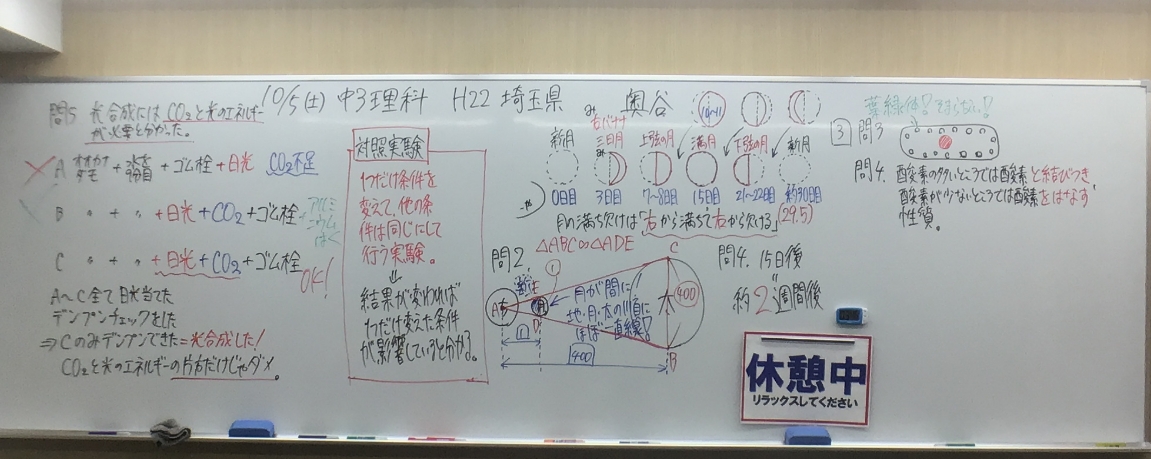 10/5(土) 中3理科 H22 埼玉県 奥谷
問5 光合成には CO₂と光のエネルギー
が必要と分かった。
A オオカナダモ + 水 + ゴム栓 + 日光 CO₂不足
B 〃 + 〃 + 日光 + CO₂ + ゴム栓 + アルミニウムはく
C 〃 + 〃 + 日光 + CO₂ + ゴム栓 OK!
A～C全て日光当てた
デンプンチェックをした
⇒ Cのみデンプンできた=光合成した!
CO₂と光のエネルギーの片方だけじゃダメ。
対照実験
1つだけ条件を
変えて、他の条
件は同じにして
行う実験。
↓
結果が変われば
1つだけ変えた条件
が影響していると分かる。
新月 三日月 上弦の月 満月 下弦の月 新月
右バナナ
0日目 3日目 7～8日目 15日目 21～22日目 約30日目
(29.5)
月の満ち欠けは「右から満ちて右から欠ける」
問2 △ABC∽△ADE
A 月 D C B 太 400
月が間に!
地・月・太の順に
ほぼ一直線!
1
400
問4. 15日後
〃
約2週間後
休憩中
リラックスしてください
3 問3
葉緑体!
問4. 酸素の多いところでは酸素と結びつき
酸素が少ないところでは酸素をはなす
性質。